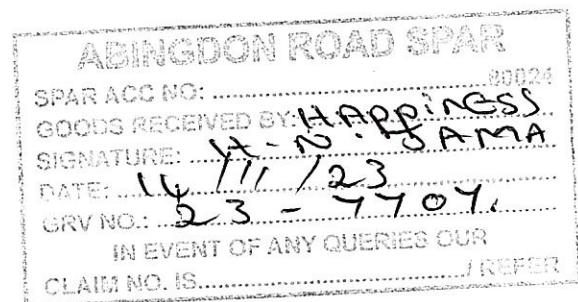 ABINGDON ROAD SPAR
SPAR ACC NO: ........................80024
GOODS RECEIVED BY: HAPPINESS
SIGNATURE: H-N. JAMA
DATE: 14/11/23
GRV NO.: 23-7707.
IN EVENT OF ANY QUERIES OUR
CLAIM NO. IS........................../ REFER